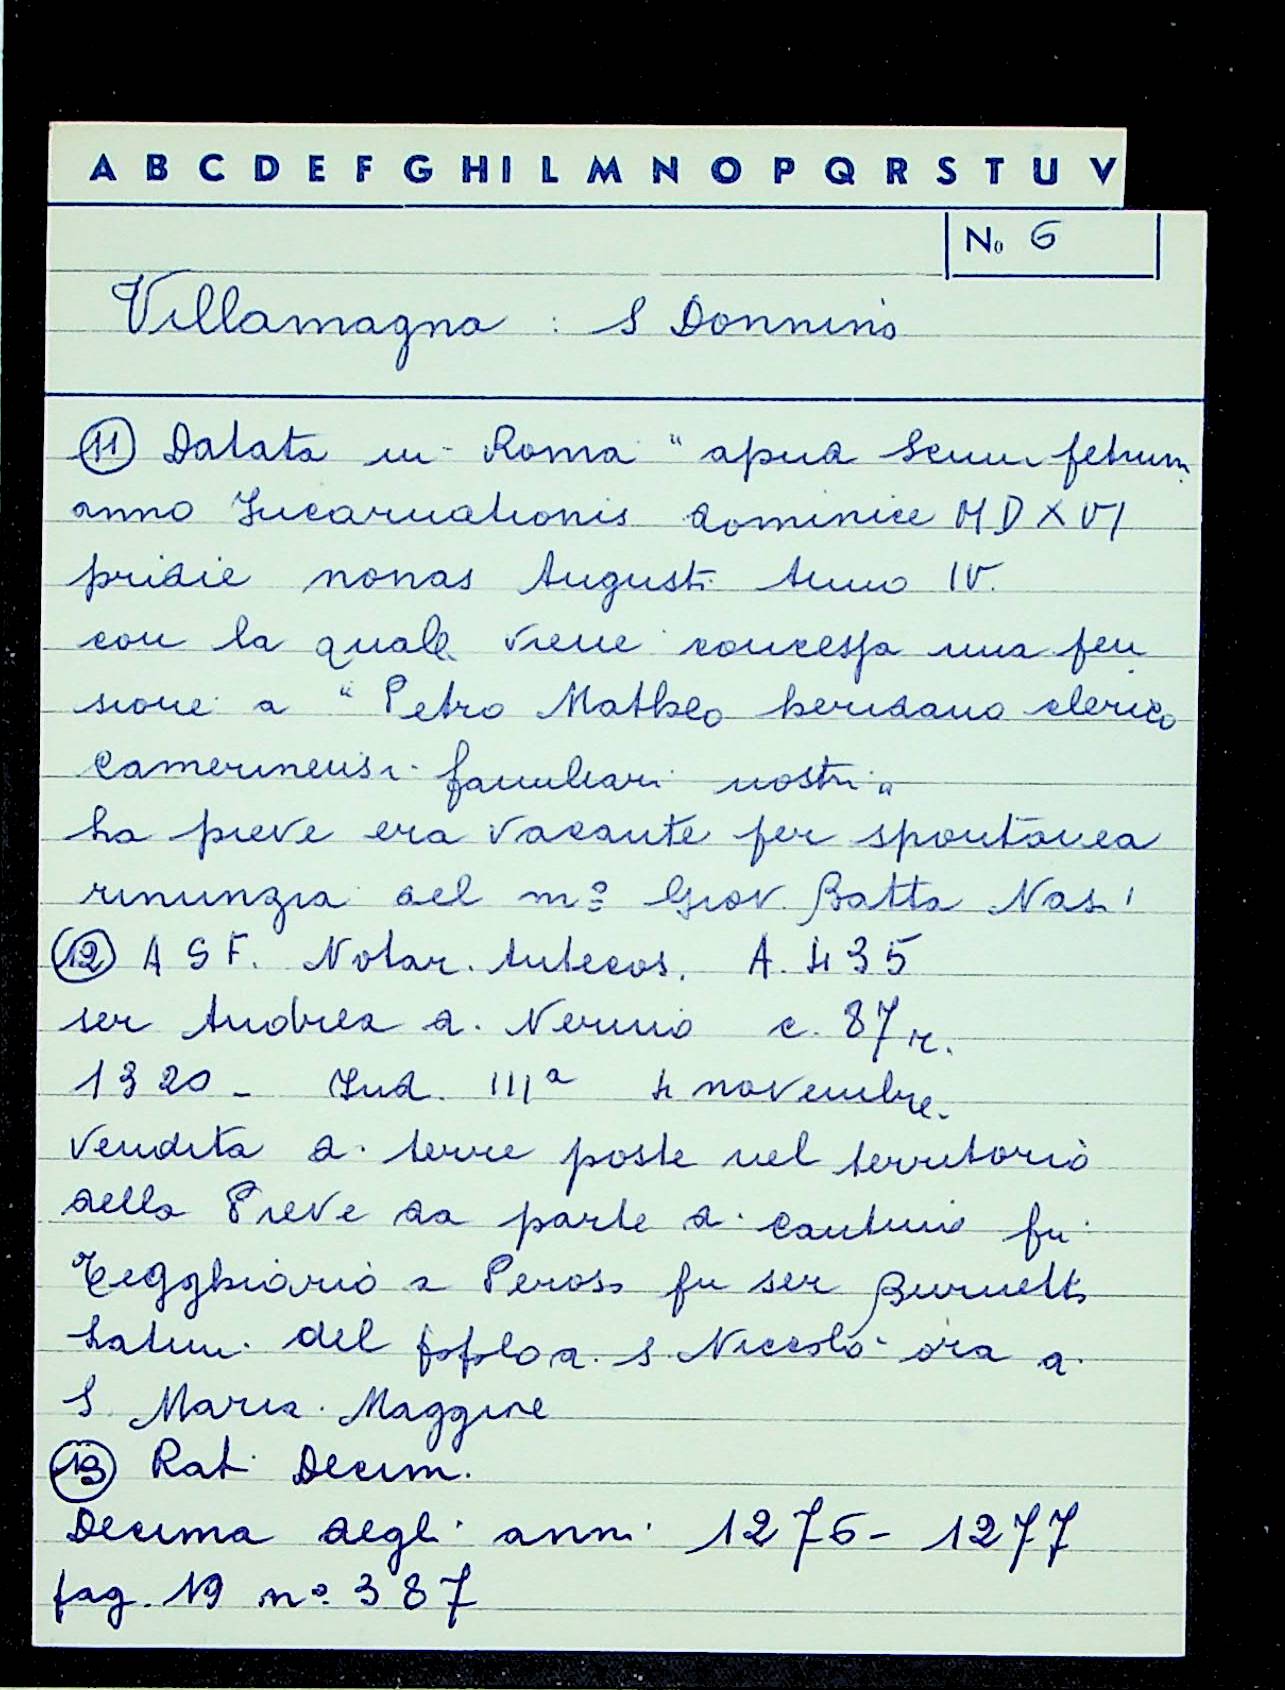 A B C D E F G H I L M N O P Q R S T U V
No 6
Villamagna : S Donnino
(11) Datata in Roma " apud Scum petrum
anno Incarnationis dominice MDXVI
pridie nonas Augusti Anno IV.
con la quale viene concessa una pen
sione a " Petro Matheo clerico
Camerinensi familiari nostri "
La pieve era vacante per spontanea
rinunzia del mº Giov. Batta Nasi
(12) A S F. Notar. Antecos. A. 435
ser Andrea di Nerino c. 87 r.
1320 - Ind. IIIª 4 novembre.
vendita di terre poste nel territorio
della Pieve da parte di Cantino fu
Tegghiario a Peroso fu ser Burnetto
Latini del popolo di S. Niccolò ora di
S. Maria Maggiore
(13) Rat. Decim.
Decima degli anni 1276 - 1277
pag. 19 nº 387